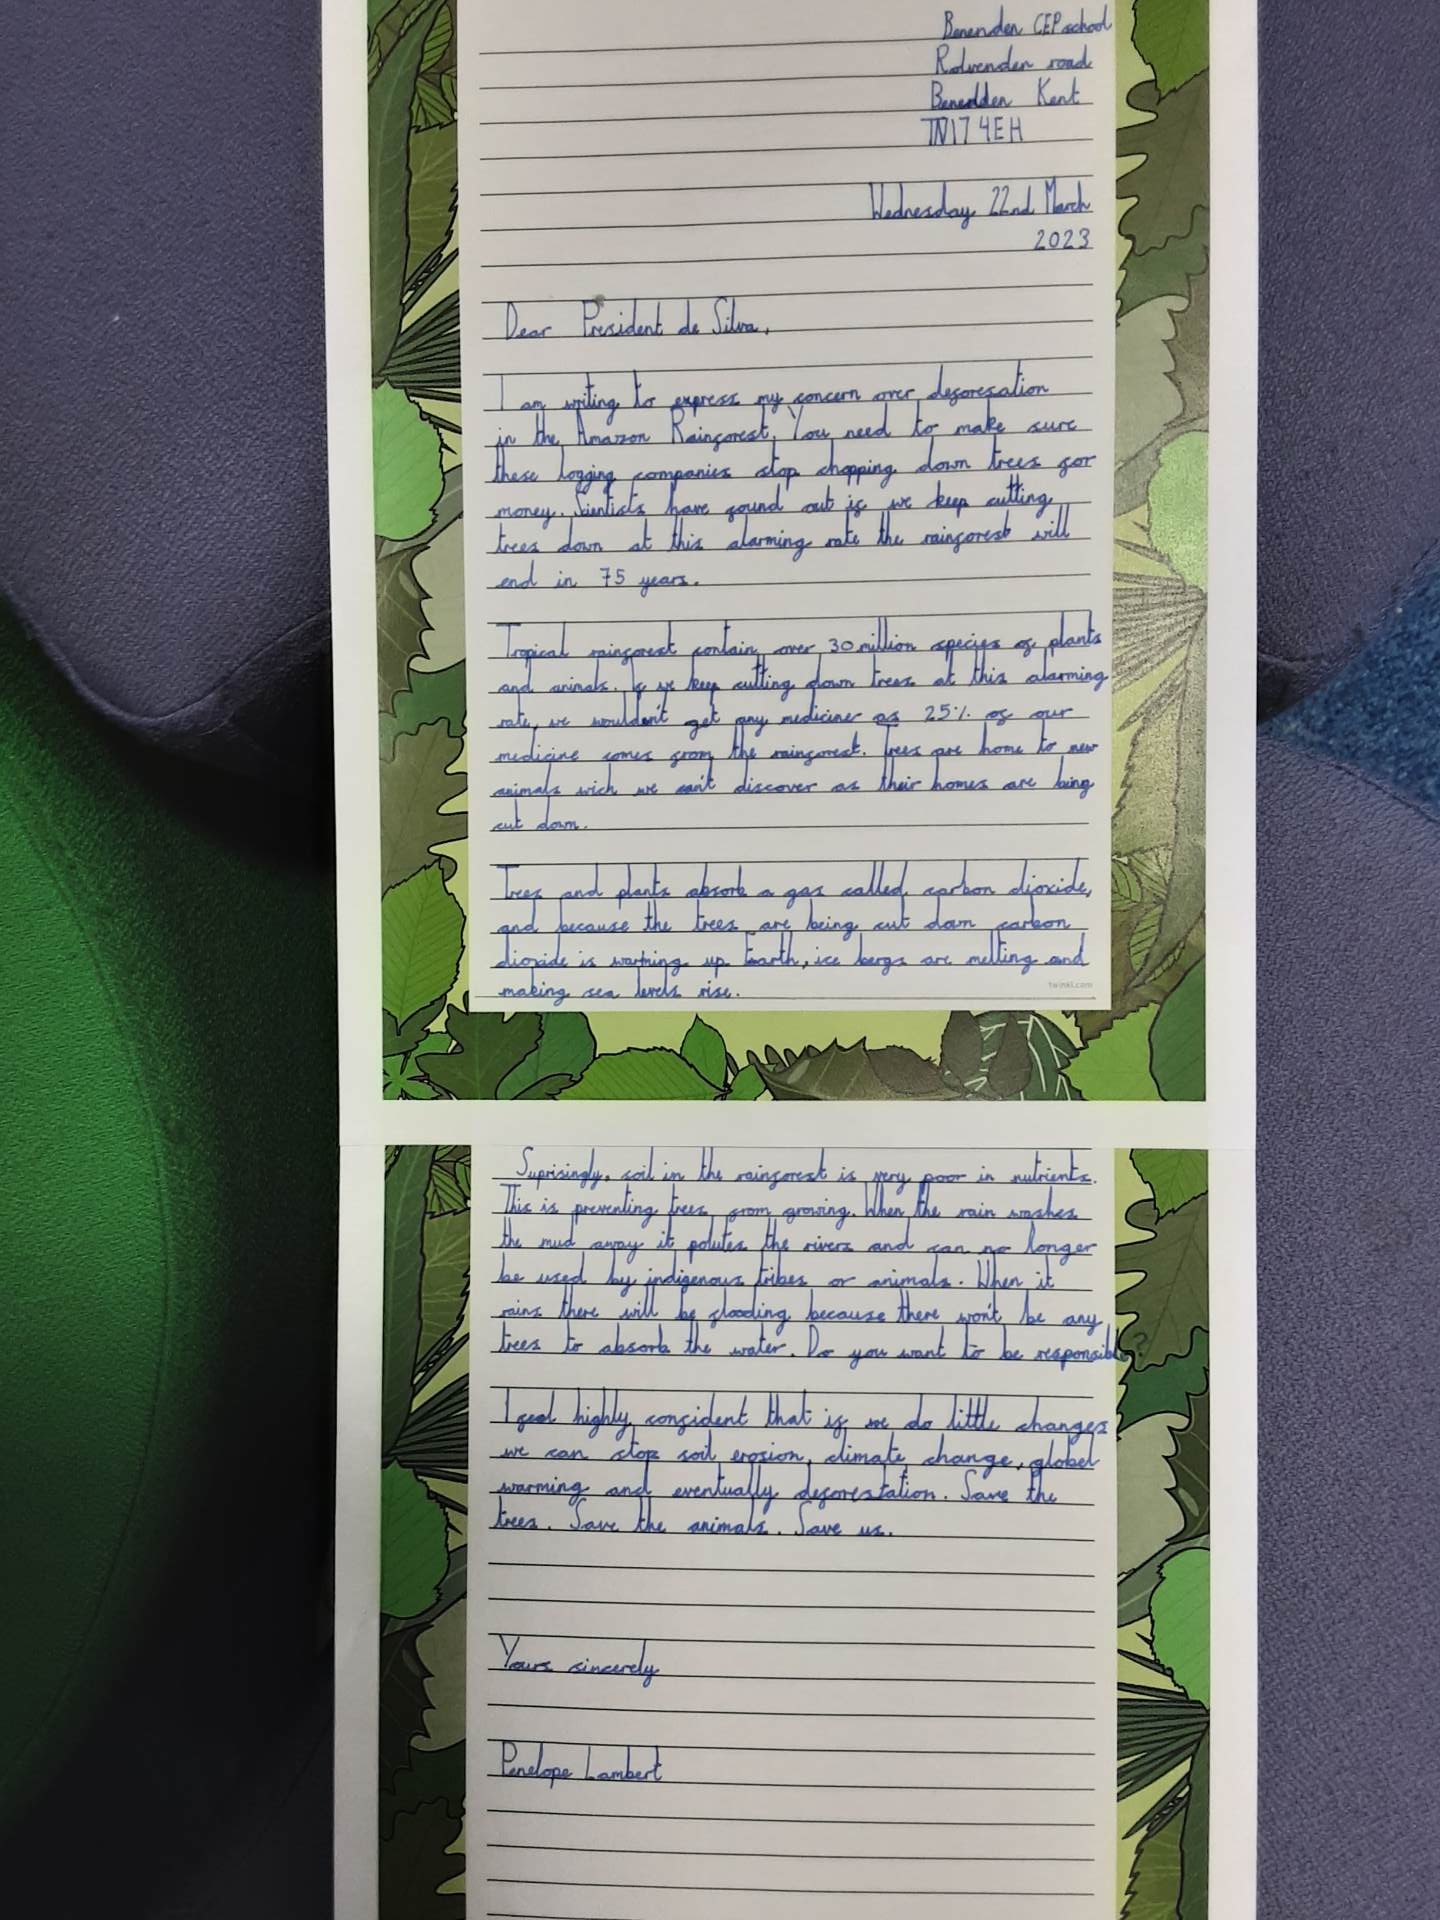 Benenden CEP school
Rolvenden road
Benedden Kent
TN17 4EH
Wednesday 22nd March
2023
Dear President de Silva,
I am writing to express my concern over deforesation
in the Amazon Rainforest. You need to make sure
these logging companies stop chopping down trees for
money. Sientists have found out if we keep cutting
trees down at this alarming rate the rainforest will
end in 75 years.
Tropical rainforest contain over 30 million species of plants
and animals. If we keep cutting down trees at this alarming
rate, we wouldn't get any medicine as 25% of our
medicine comes from the rainforest. Trees are home to new
animals wich we can't discover as their homes are being
cut down.
Trees and plants absorb a gas called carbon dioxide,
and because the trees are being cut down carbon
dioxide is warming up Earth, ice bergs are melting and
making sea levels rise.
twinkl.com
Suprisingly, soil in the rainforest is very poor in nutrients.
This is preventing trees from growing. When the rain washes
the mud away it polutes the rivers and can no longer
be used by indigenous tribes or animals. When it
rains there will be flooding because there won't be any
trees to absorb the water. Do you want to be responsible?
I feel highly confident that if we do little changes
we can stop soil erosion, climate change, globel
warming and eventually deforestation. Save the
trees. Save the animals. Save us.
Yours sincerely
Penelope Lambert